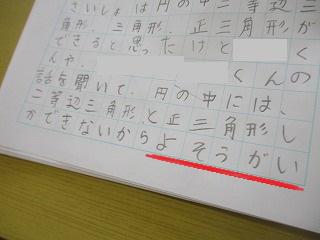 さいしょは円の中に二等辺三
角形、三角形、正三角形が
できると思ったけど　　く
んや、　　　　　くんの
話を聞いて、円の中には、
二等辺三角形と正三角形し
かできないからよそうがい